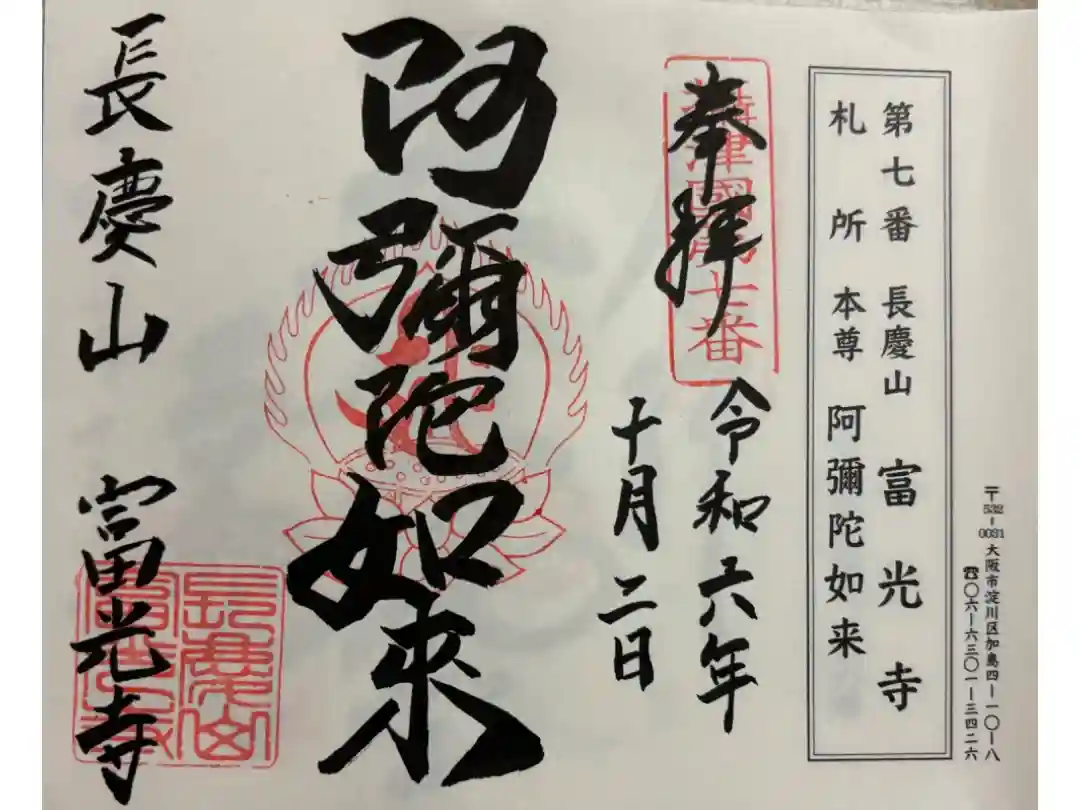 〒532-0031 大阪市淀川区加島四ー一〇ー八
☎〇六ー六三〇一ー三四二六
第七番 長慶山 富光寺
札所 本尊 阿彌陀如来
奉拝
攝津國第七番
令和六年
十月二日
阿彌陀如來
長慶山 富光寺
長慶山
富光寺